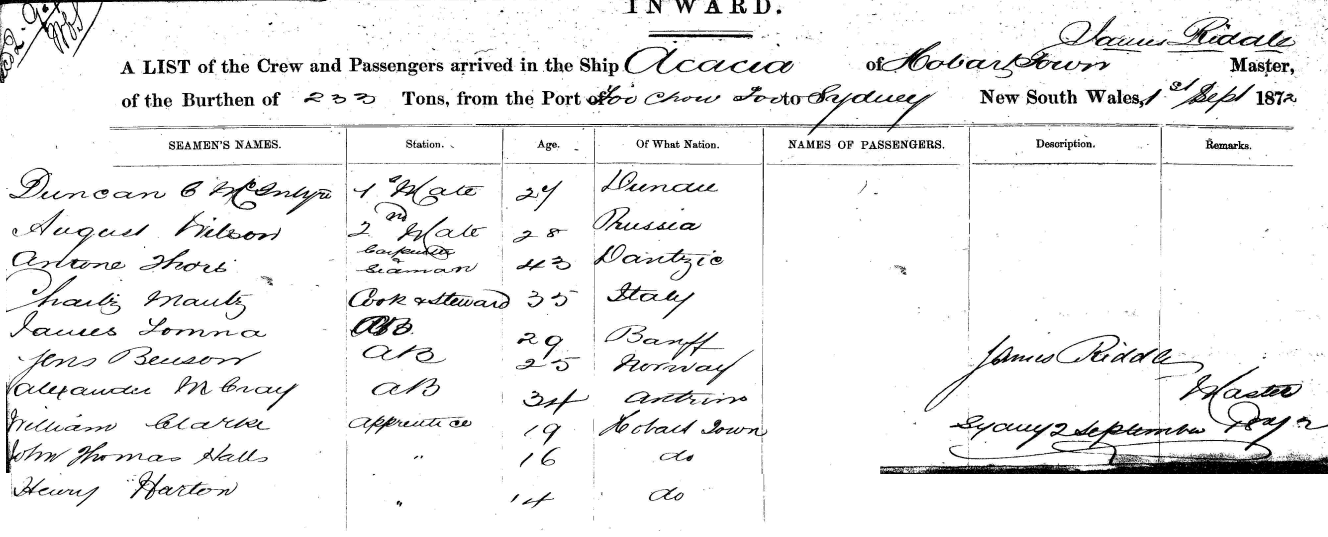 INWARD.
James Riddle
A LIST of the Crew and Passengers arrived in the Ship Acacia of Hobart Town Master,
of the Burthen of 233 Tons, from the Port of Foo Chow Foo to Sydney New South Wales, 1st Sept 1872
SEAMEN'S NAMES. Station. Age. Of What Nation. NAMES OF PASSENGERS. Description. Remarks.
Duncan C McIntyre 1st Mate 27 Dundee
August Wilson 2nd Mate 28 Prussia
Antone Carpenter
Seaman 43 Dantzic
Mautz Cook & Steward 35 Italy
James Lomna AB 29 Banff
Jens Benson AB 25 Norway
Alexander McCray AB 34 Antrim
William Clarke Apprentice 19 Hobart Town
John Thomas Halls " 16 do
Henry Harton " 14 do
James Riddle
Master
Sydney 2 September 1872